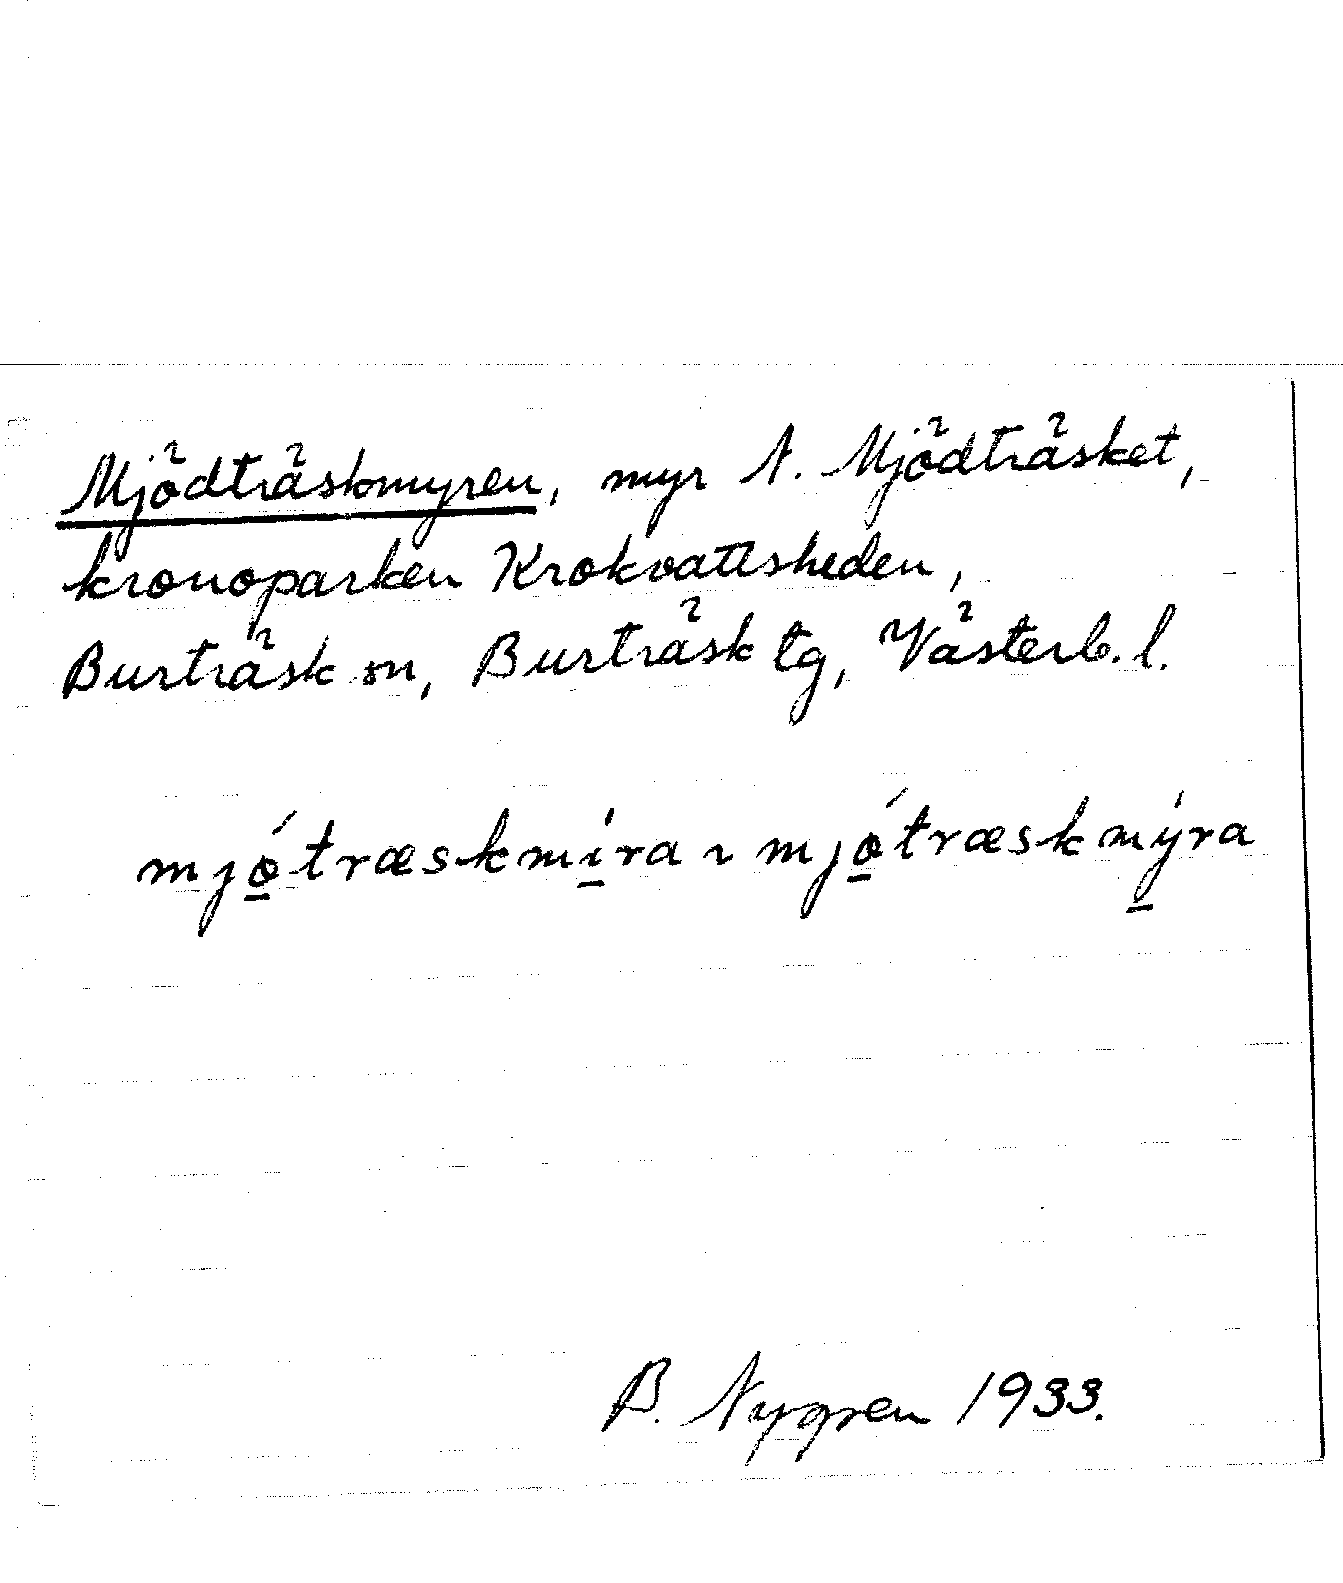 Mjödträskmyren, myr N. Mjödträsket,
kronoparken Krokvattsheden,
Burträsk sn, Burträsk tg, Västerb. l.
mjó̱træskmí̱ra ~ mjó̱træskmý̱ra
B. Nygren 1933.